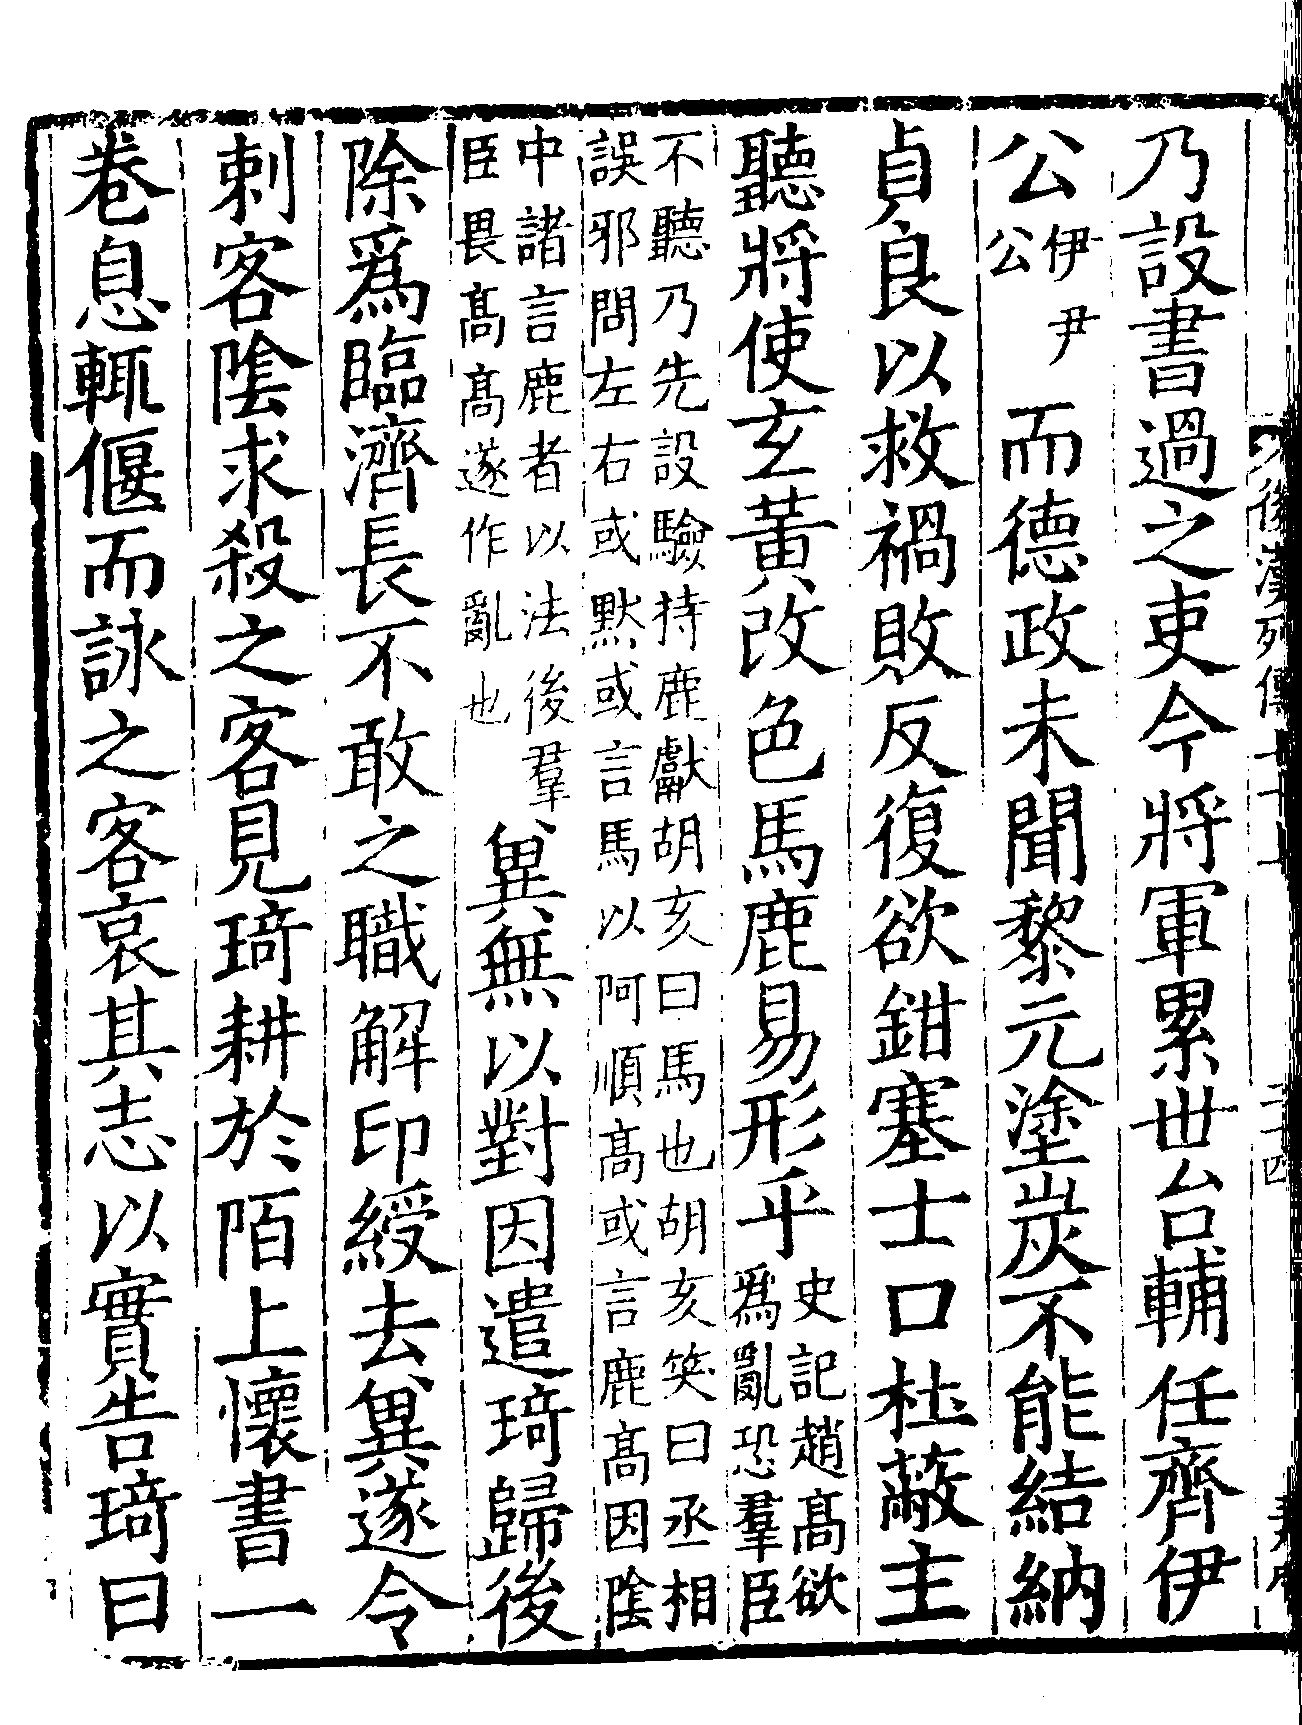 乃設書過之吏今將軍累世台輔任齊伊
公伊尹公而德政未聞黎元塗炭不能結納
貞良以救禍敗反復欲鉗塞士口杜蔽主
聽將使玄黃改色馬鹿易形乎史記趙髙欲爲亂恐羣臣
不聽乃先設驗持鹿獻胡亥曰馬也胡亥笑曰丞相
誤邪問左右或默或言馬以阿順髙或言鹿髙因隂
中諸言鹿者以法後羣臣畏髙髙遂作亂也兾無以對因遣琦歸後
除爲臨濟長不敢之職解印綬去兾遂令
刺客隂求殺之客見琦耕於陌上懷書一
巻息輒偃而詠之客哀其志以實告琦曰
後漢列傳